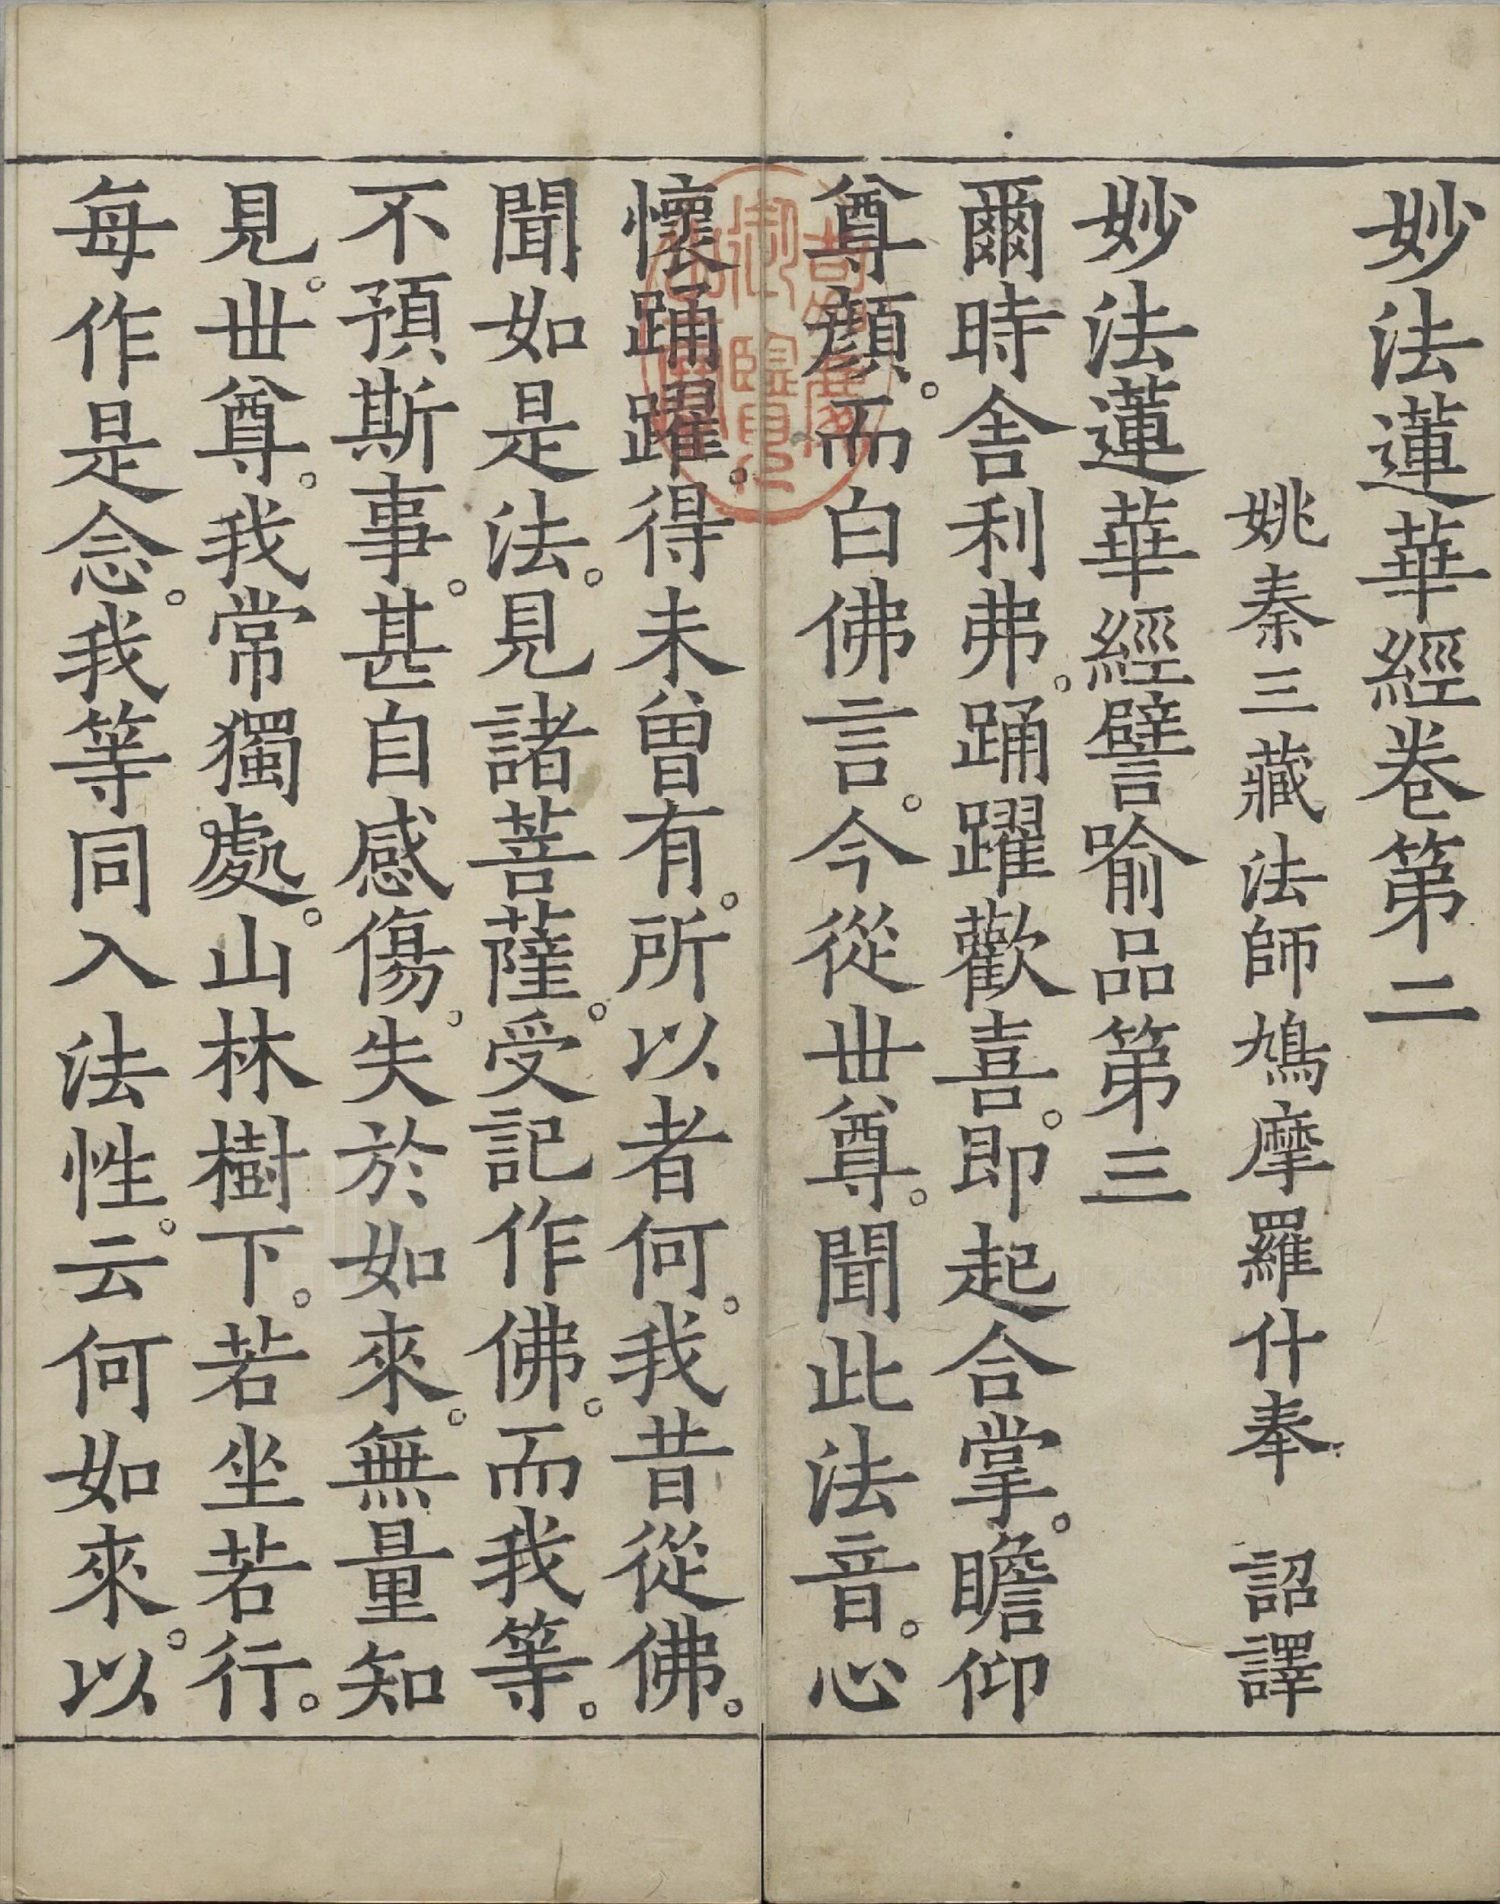 妙法蓮華經卷第二
姚秦三藏法師鳩摩羅什奉 詔譯
妙法蓮華經譬喻品第三
爾時舍利弗。踊躍歡喜。即起合掌。瞻仰
尊顏。而白佛言。今從丗尊。聞此法音。心
懷踊躍。得未曾有。所以者何。我昔從佛。
聞如是法。見諸菩薩。受記作佛。而我等。
不預斯事。甚自感傷。失於如來。無量知
見。丗尊。我常獨處。山林樹下。若坐若行。
每作是念。我等同入法性。云何如來。以